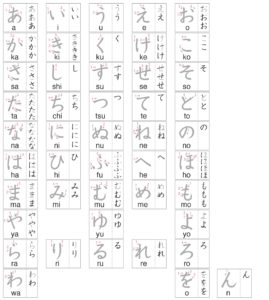 あ い う え お
a i u e o
か き く け こ
ka ki ku ke ko
さ し す せ そ
sa shi su se so
た ち つ て と
ta chi tsu te to
な に ぬ ね の
na ni nu ne no
は ひ ふ へ ほ
ha hi fu he ho
ま み む め も
ma mi mu me mo
や ゆ よ
ya yu yo
ら り る れ ろ
ra ri ru re ro
わ を ん
wa o n